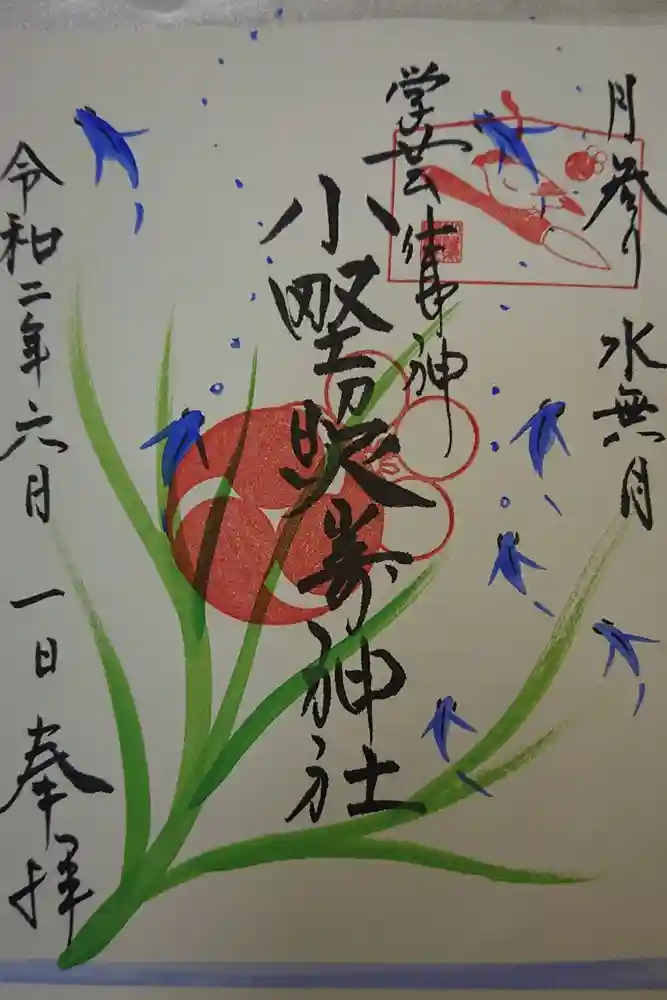 月参り
水無月
学芸神
小野照崎神社
令和二年六月一日奉拝